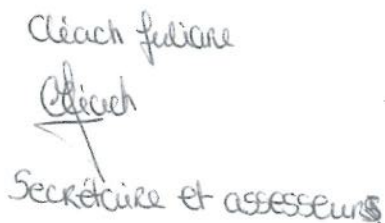 Cléach Juliane
Cléach
Secrétaire et assesseurs